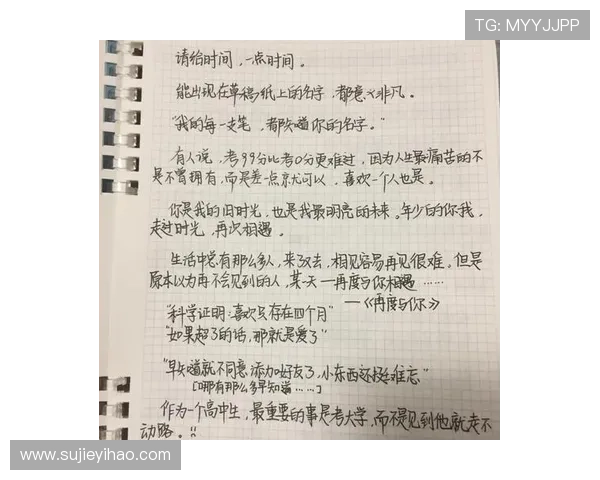 TG: MYYJJPP
请给时间，一点时间。
能出现在草稿纸上的名字，都意义非凡。
"我的每一支笔，都知道你的名字。"
有人说，考99分比考0分更难过，因为人生最痛苦的不
是不曾拥有，而是差一点就可以，喜欢一个人也是。
你是我的旧时光，也是我最明亮的未来。年少的你我，
走过时光，再次相遇。
生活中总有那么多人，来了又去，相见容易再见很难。但是
原本以为再不会见到的人，某一天一再度与你相遇……
—《再度与你》
"科学证明：喜欢只存在四个月"
"如果超了的话，那就是爱了"
"早知道就不同意添加好友了，小东西还挺难忘"
[哪有那么多早知道……]
作为一个高中生，最重要的事是考大学，而不是见到他就走不
动路。!!
www.sujieyihao.com